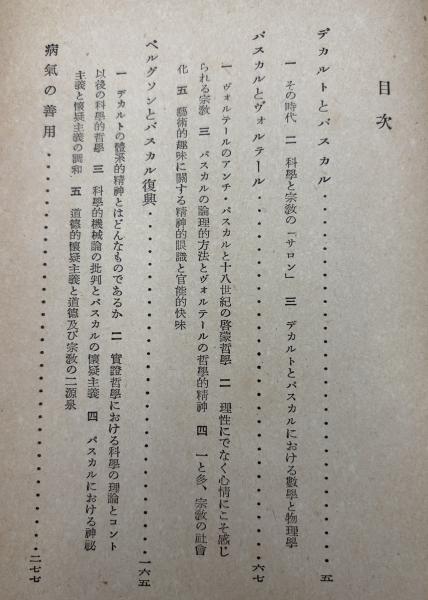 目次
デカルトとパスカル・・・・・・・・・・・・・・・・・・五
一 その時代 二 科學と宗教の「サロン」 三 デカルトとパスカルにおける數學と物理學
パスカルとヴォルテール・・・・・・・・・・・・・・・・六七
一 ヴォルテールのアンチ・パスカルと十八世紀の啓蒙哲學 二 理性にでなく心情にこそ感じ
られる宗教 三 パスカルの論理的方法とヴォルテールの哲學的精神 四 一と多、宗教の社會
化 五 藝術的趣味に關する精神的眼識と官能的快味
ベルグソンとパスカル復興・・・・・・・・・・・・・・・一六五
一 デカルトの體系的精神とはどんなものであるか 二 實證哲學における科學の理論とコント
以後の科學的哲學 三 科學的機械論の批判とパスカルの懷疑主義 四 パスカルにおける神祕
主義と懷疑主義の調和 五 道德的懷疑主義と道德及び宗教の二源泉
病氣の善用・・・・・・・・・・・・・・・・・・・・・・二七七